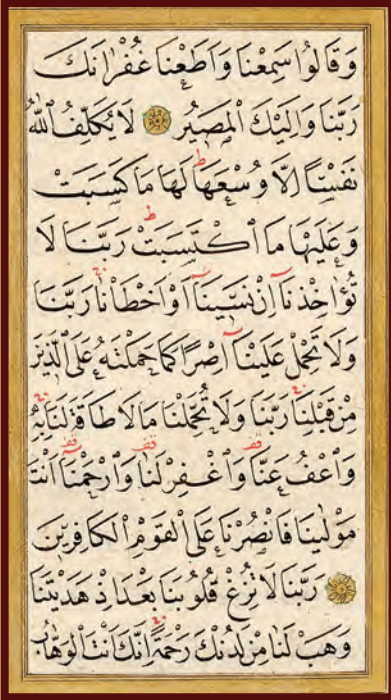 وَقَالُوا سَمِعْنَا وَاَطَعْنَا غُفْرَانَكَ
رَبَّنَا وَاِلَيْكَ الْمَصٖيرُ لَا يُكَلِّفُ اللّٰهُ
نَفْسًا اِلَّا وُسْعَهَا لَهَا مَا كَسَبَتْ
وَعَلَيْهَا مَا اكْتَسَبَتْ رَبَّنَا لَا
تُؤَاخِذْنَا اِنْ نَسٖينَا اَوْ اَخْطَاْنَا رَبَّنَا
وَلَا تَحْمِلْ عَلَيْنَا اِصْرًا كَمَا حَمَلْتَهُ عَلَى الَّذٖينَ
مِنْ قَبْلِنَا رَبَّنَا وَلَا تُحَمِّلْنَا مَا لَا طَاقَةَ لَنَا بِهٖ
وَاعْفُ عَنَّا وَاغْفِرْ لَنَا وَارْحَمْنَا اَنْتَ
مَوْلٰينَا فَانْصُرْنَا عَلَى الْقَوْمِ الْكَافِرٖينَ
رَبَّنَا لَا تُزِغْ قُلُوبَنَا بَعْدَ اِذْ هَدَيْتَنَا
وَهَبْ لَنَا مِنْ لَدُنْكَ رَحْمَةً اِنَّكَ اَنْتَ الْوَهَّابُ